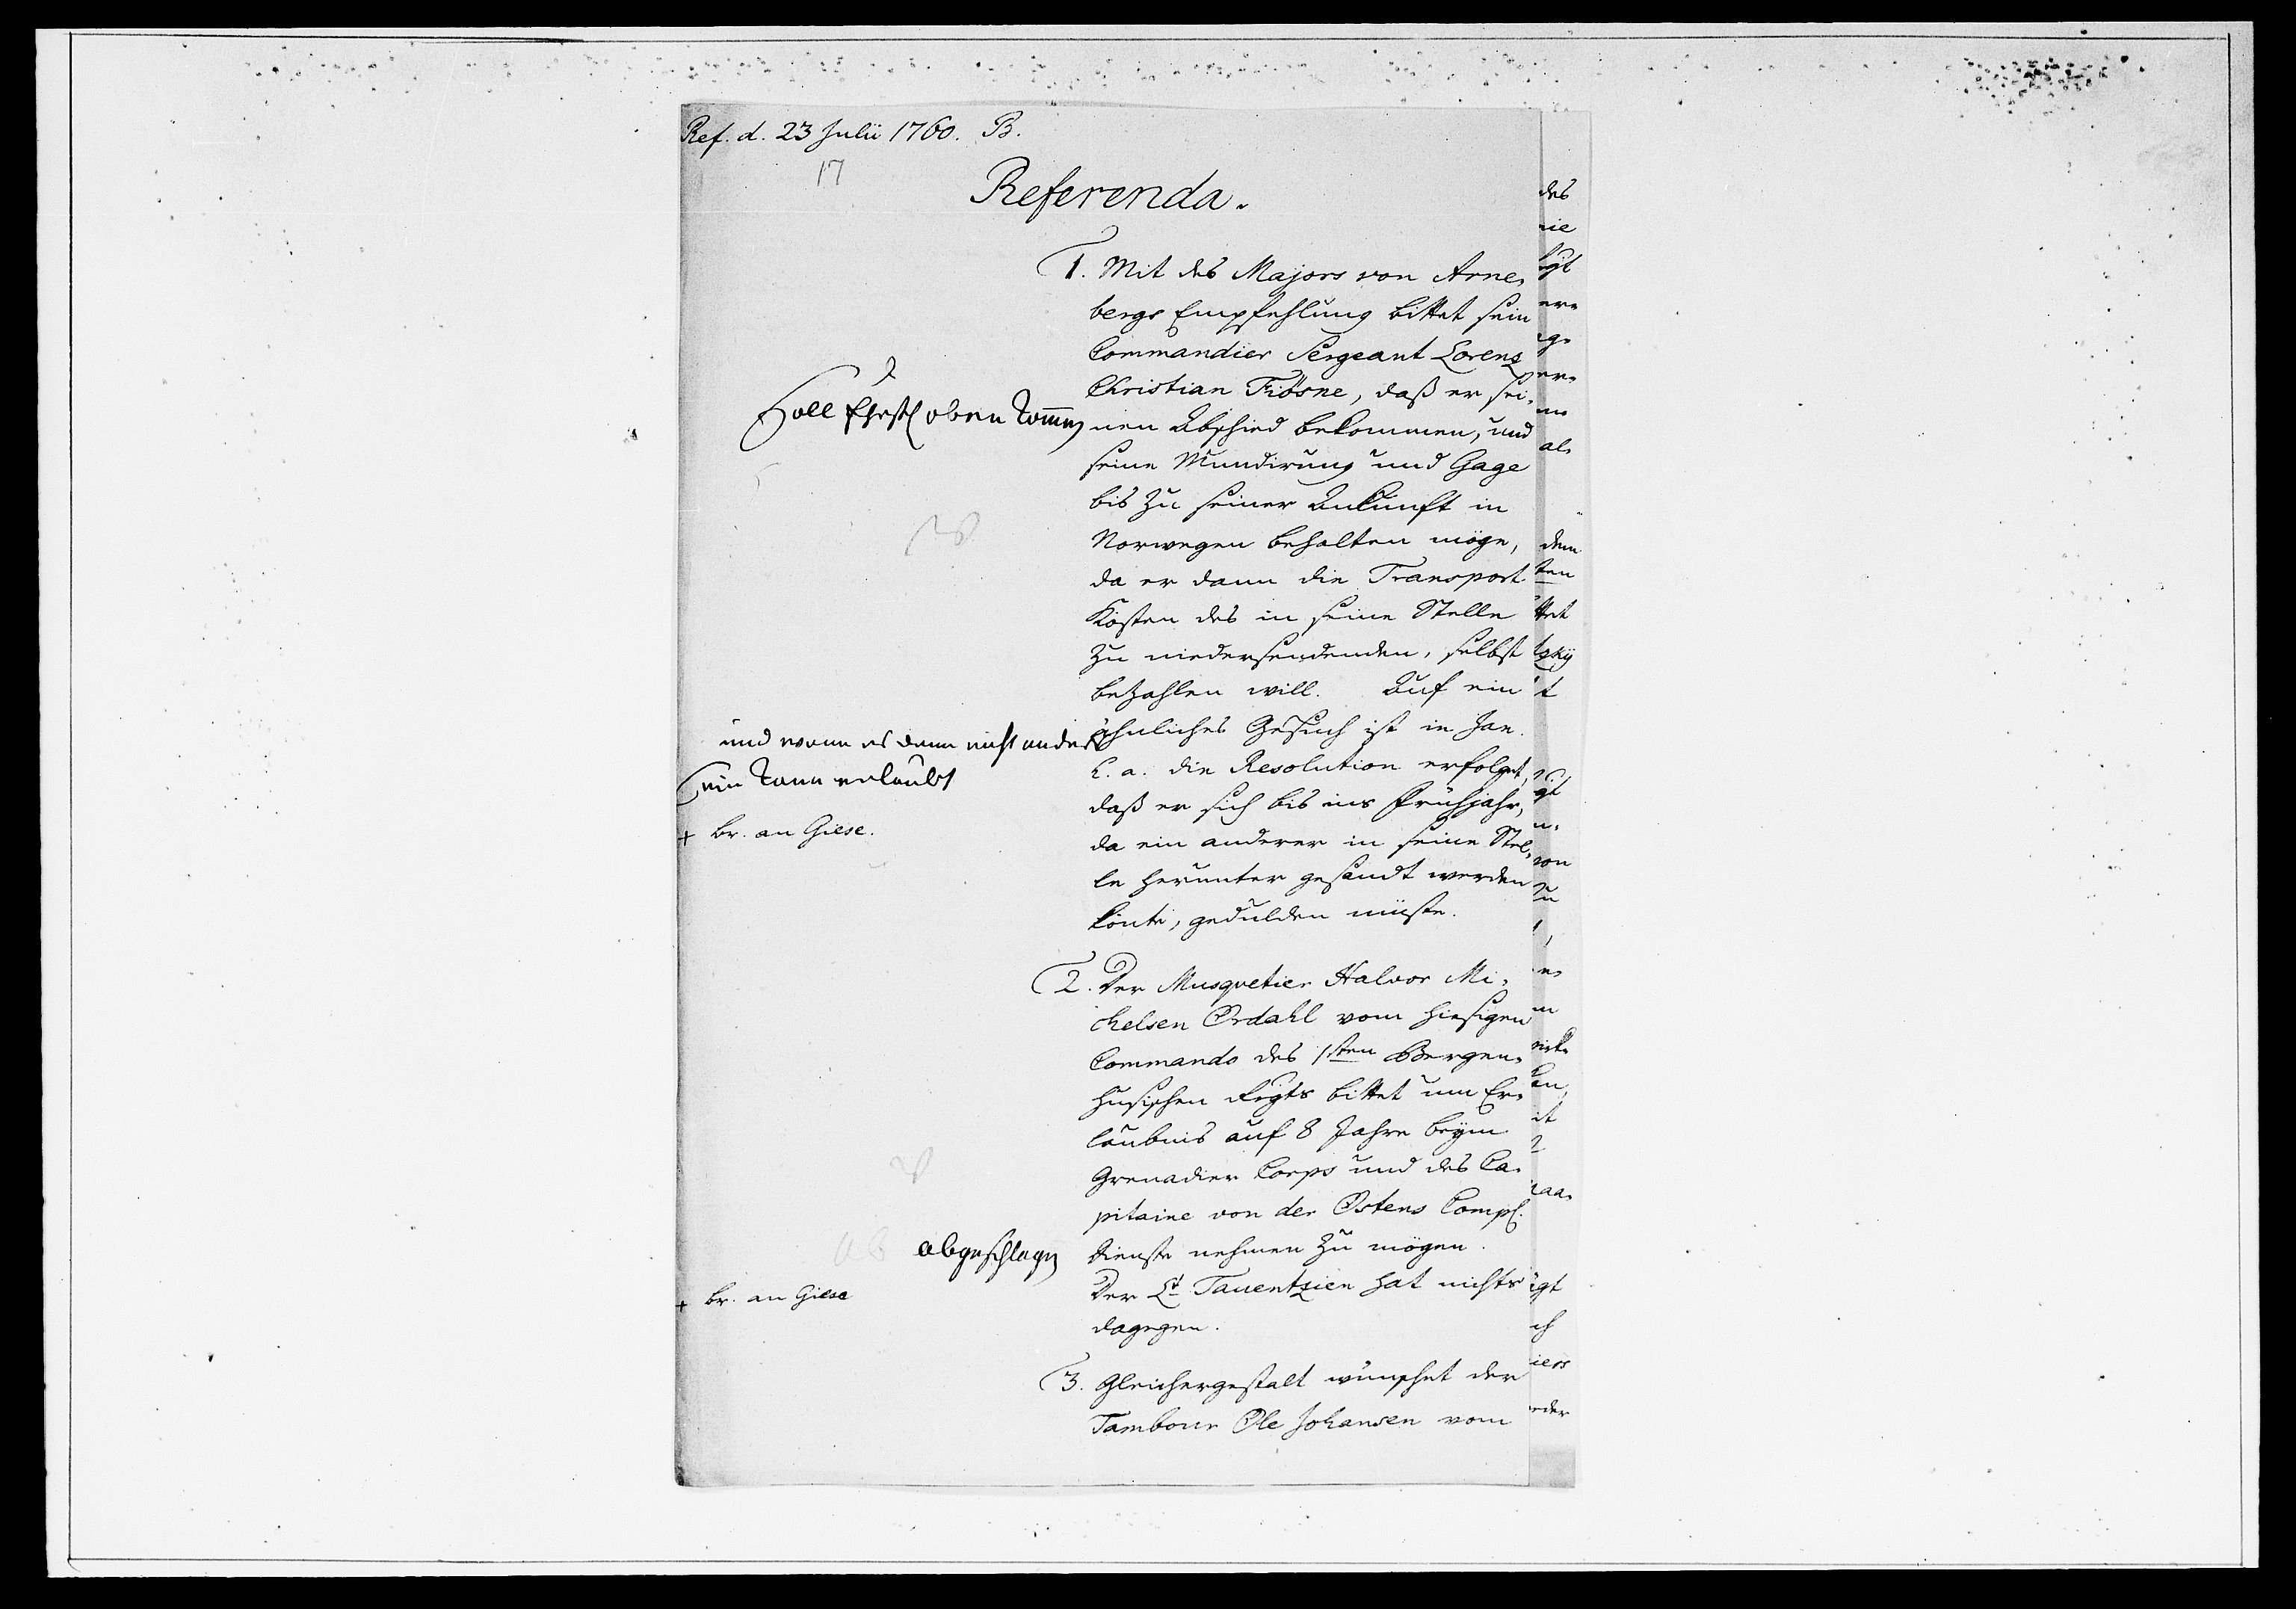 Ref. d. 23 Julii 1760. B.
17
Referenda.
1. Mit des Majors von Arne-
bergs Empfehlung bittet sein
Commandier Sergeant Lorenz
Christian Fiösne, daß er sei-
nen Abschied bekommen, und
seine Mundirung und Gage
bis zu seiner Ankunft in
Norwegen behalten möge,
da er dann die Transport
Kosten des in seine Stelle
zu niedersendenden, selbst
bezahlen will. Auf ein
ähnliches Gesuch ist in Jan.
h. a. die Resolution erfolget,
daß er sich bis ins Frühjahr,
da ein anderer in seine Stel-
le herunter gesandt werden
könte, gedulden müste.
Soll oben komen
und wenn es denn nicht anders
sein kann erlaubt
+ Br. an Giese.
2. Der Musqvetier Halvor Mi-
chelsen Ørdahl vom hiesigen
Commando des 1sten Bergen-
husischen Regts bittet um Er-
laubnis auf 8 Jahre beym
Grenadier Corps und des Ca-
pitaine von der Ostens Comp.
Dienste nehmen zu mögen.
Der Lt Tauentzien hat nichts
dagegen.
ab abgeschlagen
+ Br. an Giese
3. Gleichergestalt wünschet der
Tambour Ole Johansen vom